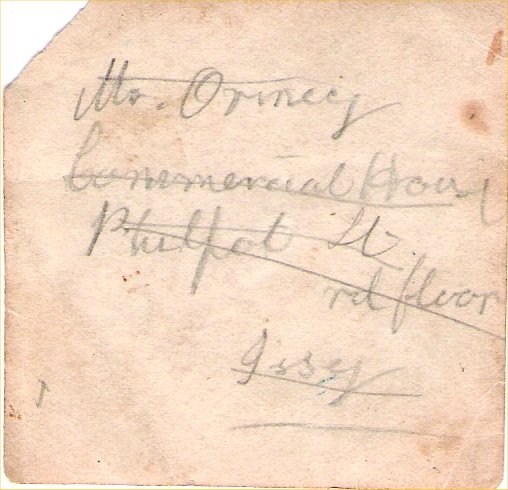 Mr. Ormecy
Commercial Hou
Philpot St.
rd floor
Issy